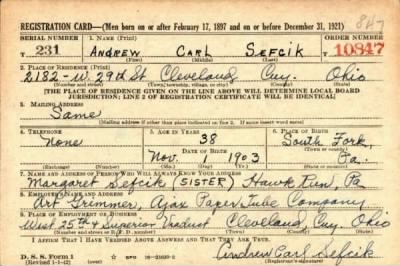 REGISTRATION CARD—(Men born on or after February 17, 1897 and on or before December 31, 1921)
847
SERIAL NUMBER
1. NAME (Print)
ORDER NUMBER
T 231
ANDREW CARL SEFCIK
10847
(First) (Middle) (Last)
2. PLACE OF RESIDENCE (Print)
2182-W. 29th St Cleveland Cuy. Ohio
(Number and street) (Town, township, village, or city) (County) (State)
[THE PLACE OF RESIDENCE GIVEN ON THE LINE ABOVE WILL DETERMINE LOCAL BOARD
JURISDICTION; LINE 2 OF REGISTRATION CERTIFICATE WILL BE IDENTICAL]
3. MAILING ADDRESS
Same
[Mailing address if other than place indicated on line 2. If same insert word same]
4. TELEPHONE
5. AGE IN YEARS
6. PLACE OF BIRTH
None
38
South Fork,
DATE OF BIRTH
Nov. 1 1903
Pa.
(Exchange) (Number) (Mo.) (Day) (Yr.) (State or country)
7. NAME AND ADDRESS OF PERSON WHO WILL ALWAYS KNOW YOUR ADDRESS
Margaret Sefcik (SISTER) Hawk Run, Pa
8. EMPLOYER'S NAME AND ADDRESS
Art Grimmer, Ajax Paper Tube Company
9. PLACE OF EMPLOYMENT OR BUSINESS
West 25th & Superior Viaduct Cleveland, Cuy. Ohio
(Number and street or R. F. D. number) (Town) (County) (State)
I AFFIRM THAT I HAVE VERIFIED ABOVE ANSWERS AND THAT THEY ARE TRUE.
D. S. S. Form 1
(Revised 1-1-42) (over)
Andrew Carl Sefcik
(Registrant's signature)